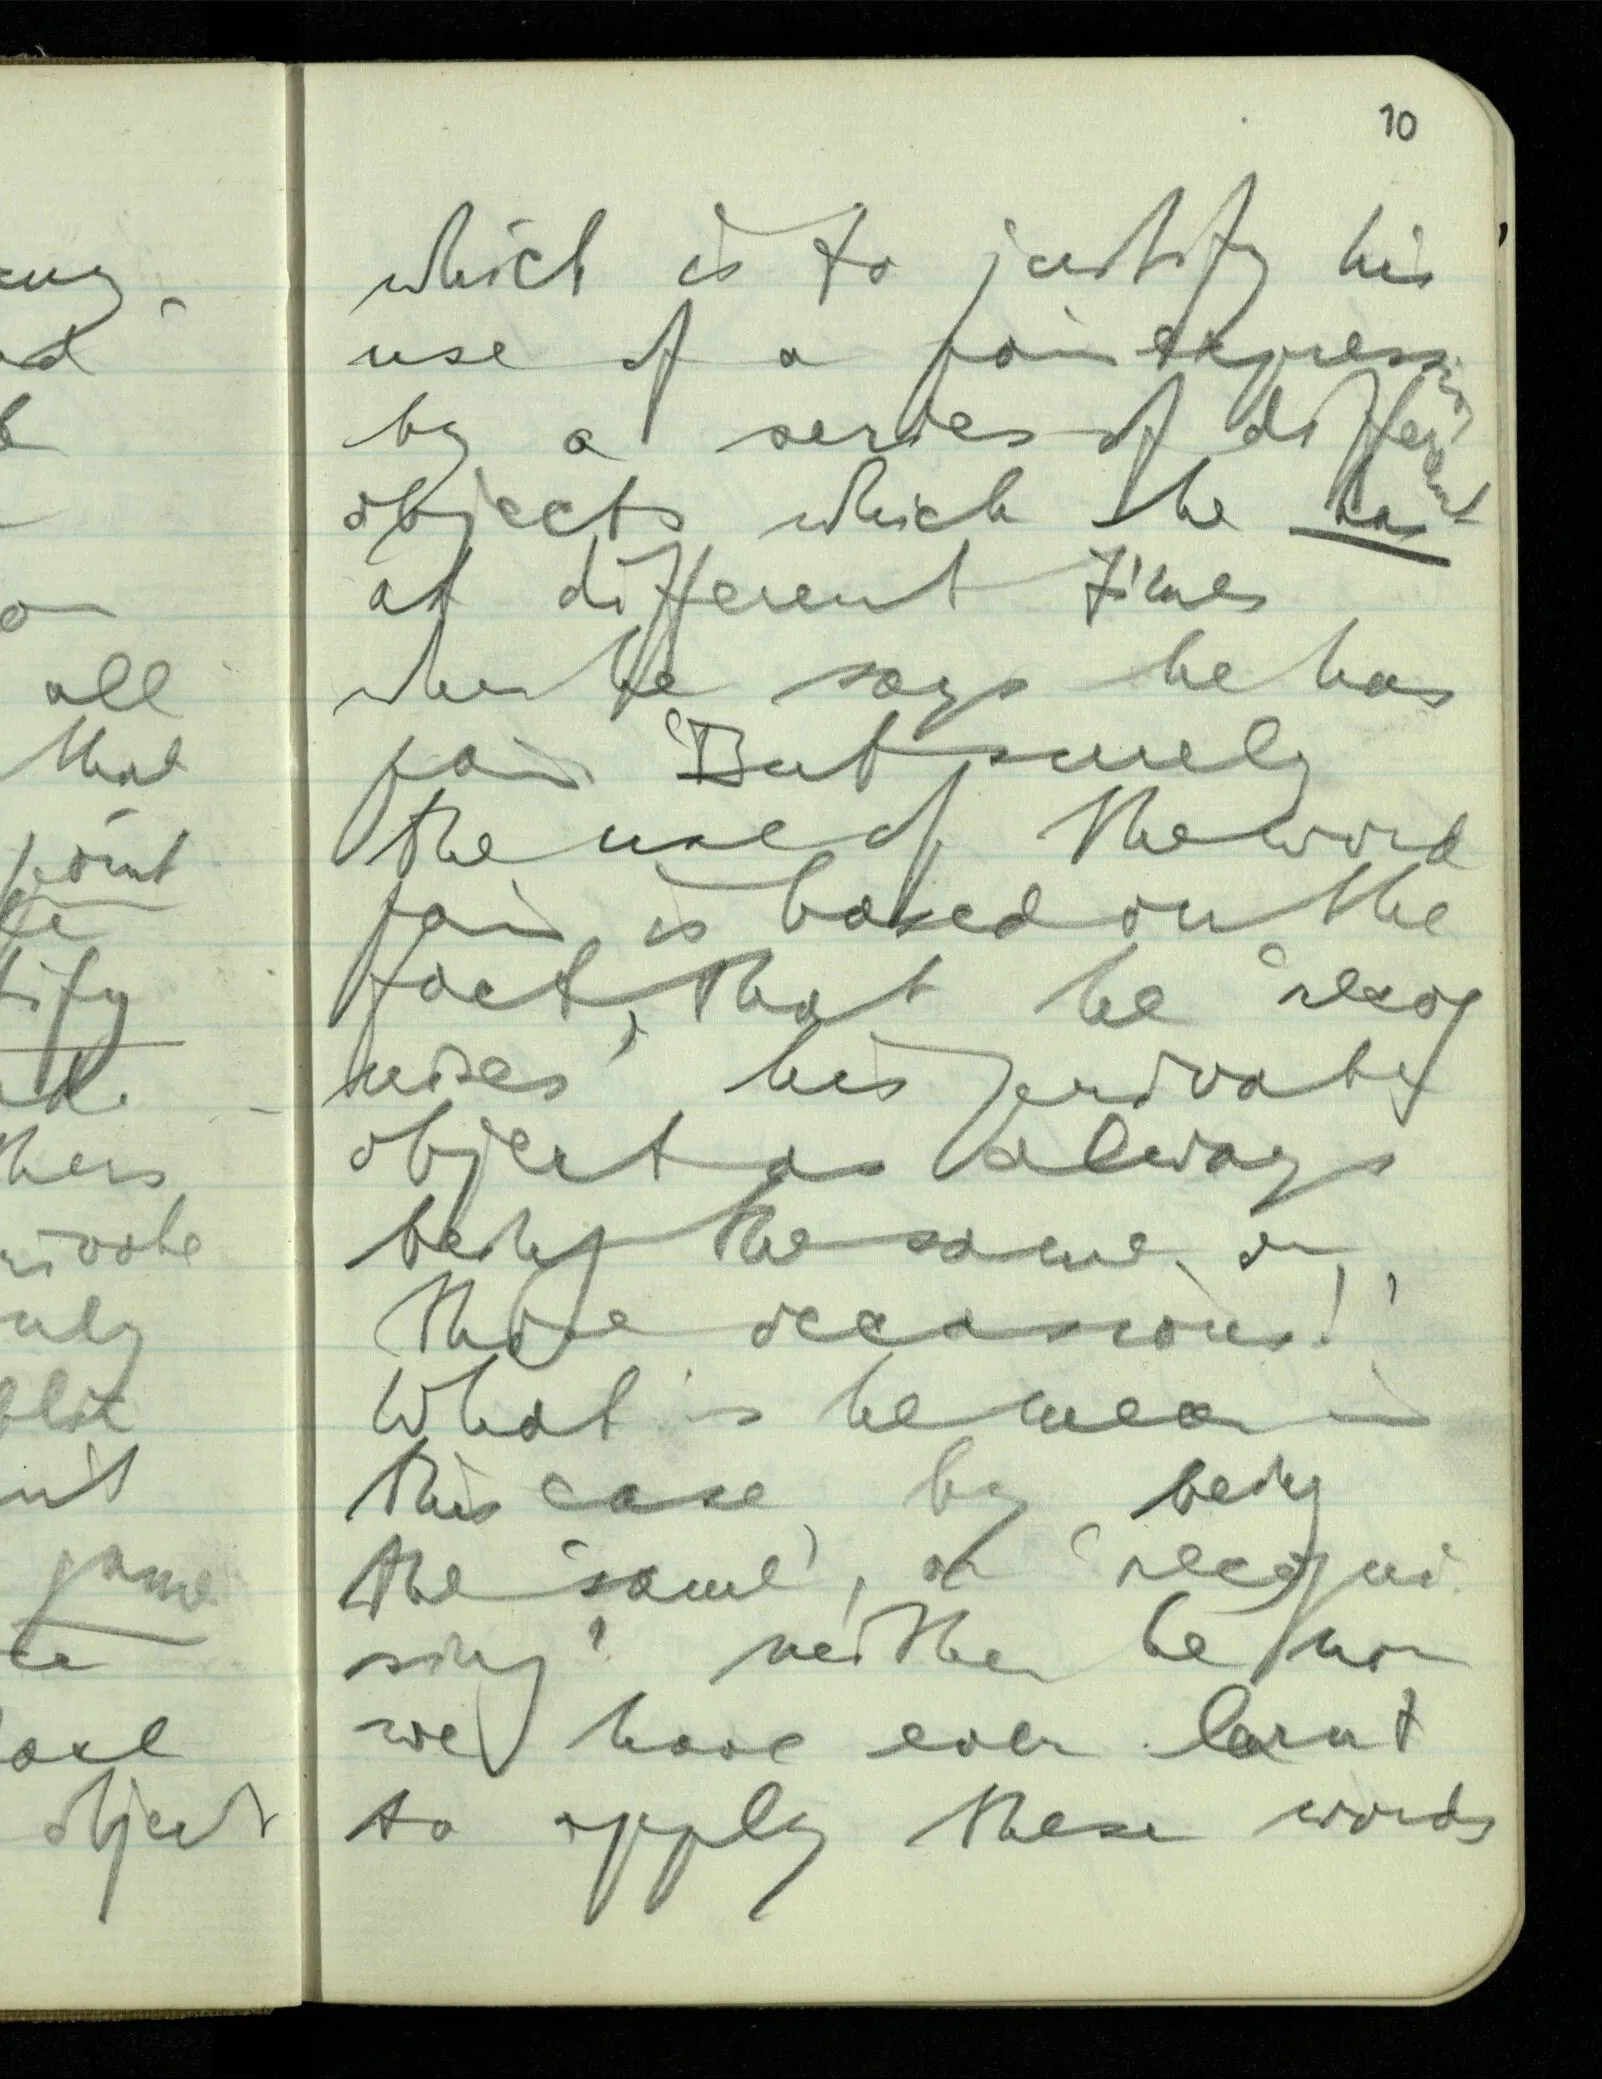 10
which is to justify his
use of a pain expression
by a series of different
objects which he has
at different times
when he says he has
pain 'But surely
the use of the word
pain is based on the
fact, that he 'recog
nises' his private
object as always
being the same on
those occasions!'
What is he mean in
this case by being
the 'same', or 'recogni
sing'? neither he nor
we have ever learnt
to apply these words
all
that
point
tify
private
game
object